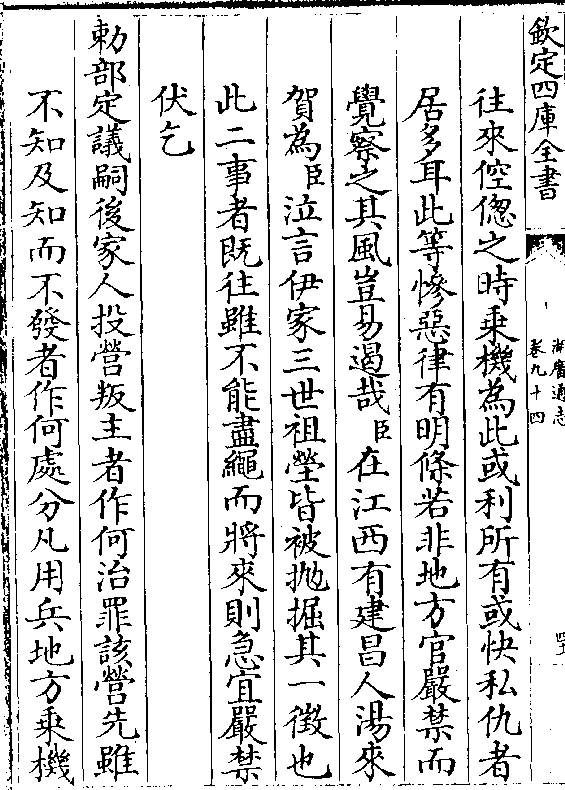 欽定四庫全書
湖廣通志
卷九十四
往來倥偬之時乘機為此或利所有或快私仇者
居多耳此等慘惡律有明條若非地方官嚴禁而
覺察之其風豈易遏哉臣在江西有建昌人湯來
賀為臣泣言伊家三世祖塋皆被抛掘其一徴也
此二事者既往雖不能盡繩而將來則急宜嚴禁
伏乞
勅部定議嗣後家人投營叛主者作何治罪該營先雖
不知及知而不發者作何處分凡用兵地方乗機